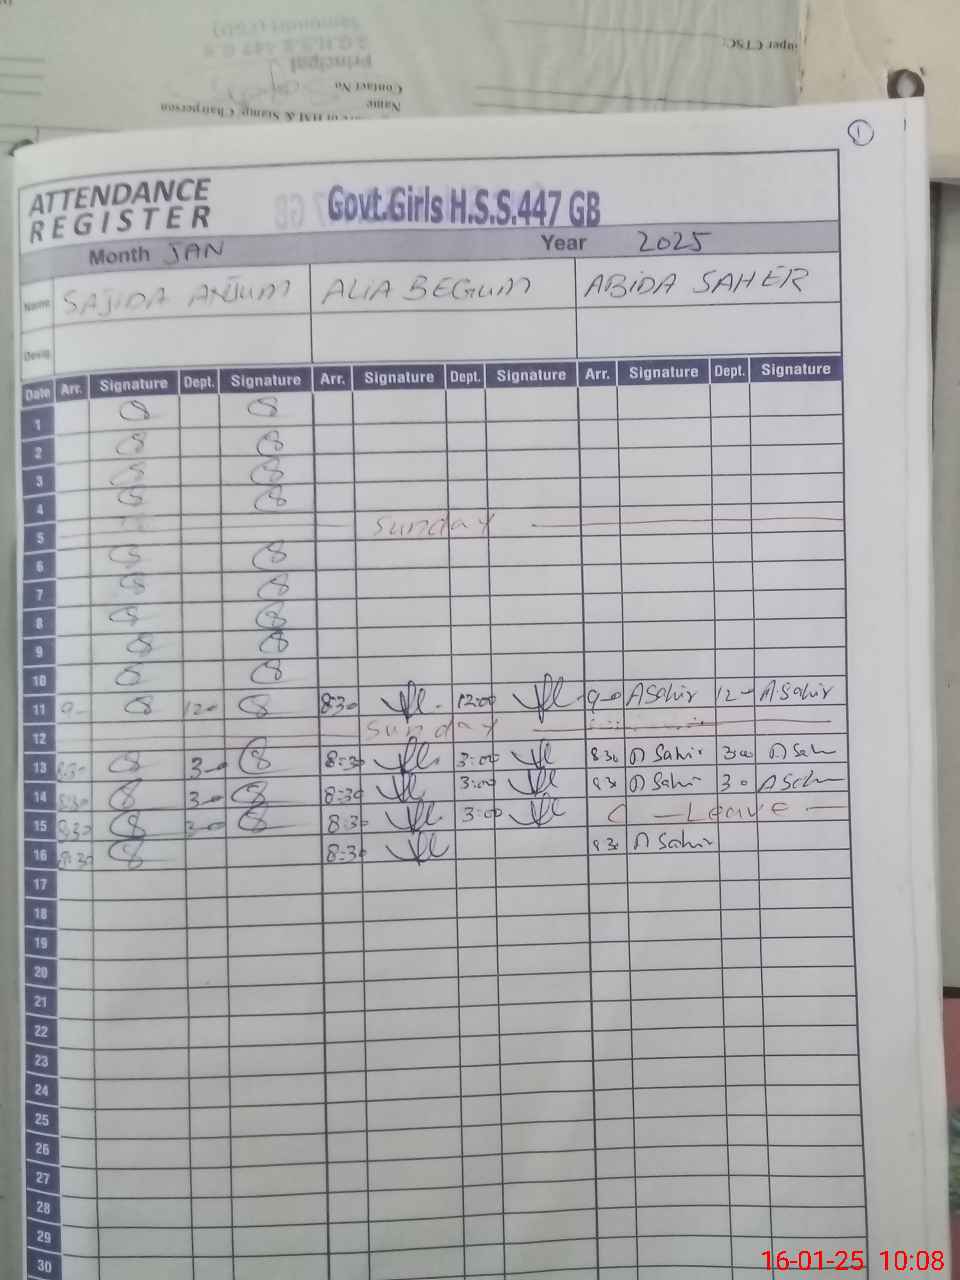 uper CTSC:
Name
Contact No
Principal
ATTENDANCE
REGISTER
Govt.Girls H.S.S.447 GB
1
Month JAN Year 2025
Name SAJIDA ANJUM ALIA BEGUM ABIDA SAHER
Desig.
Date Arr. Signature Dept. Signature Arr. Signature Dept. Signature Arr. Signature Dept. Signature
1
2
3
4
5 Sunday
6
7
8
9
10
11 9- 12-0 8:30 12:00 9-0 A Sahir 12-0 A.Sahir
12 Sunday
13 8:30 3-0 8:30 3:00 8 30 A Sahir 3:00 A Sah
14 8:30 3-0 8:30 3:00 8 30 A Sahir 3-0 A Sah
15 8:30 3-0 8:30 3:00 Leave
16 8:30 8:30 8 30 A Sahir
17
18
19
20
21
22
23
24
25
26
27
28
29
30
16-01-25 10:08